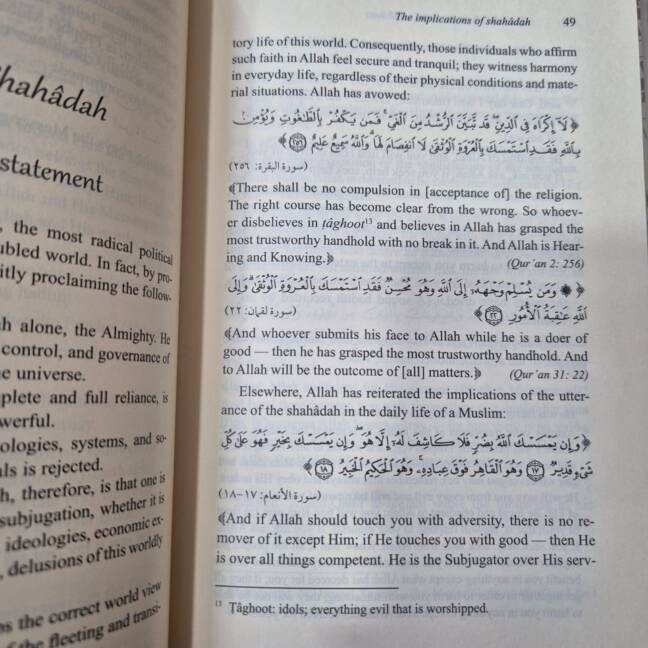 hahâdah
statement
the most radical political
ubled world. In fact, by pro-
itly proclaiming the follow-
h alone, the Almighty. He
control, and governance of
e universe.
plete and full reliance, is
werful.
ologies, systems, and so-
ls is rejected.
h, therefore, is that one is
subjugation, whether it is
ideologies, economic ex-
, delusions of this worldly
s the correct world view
of the fleeting and transi-
The implications of shahâdah 49
tory life of this world. Consequently, those individuals who affirm
such faith in Allah feel secure and tranquil; they witness harmony
in everyday life, regardless of their physical conditions and mate-
rial situations. Allah has avowed:
﴿لَآ إِكْرَاهَ فِى ٱلدِّينِ ۖ قَد تَّبَيَّنَ ٱلرُّشْدُ مِنَ ٱلْغَىِّ ۚ فَمَن يَكْفُرْ بِٱلطَّـٰغُوتِ وَيُؤْمِنۢ
بِٱللَّهِ فَقَدِ ٱسْتَمْسَكَ بِٱلْعُرْوَةِ ٱلْوُثْقَىٰ لَا ٱنفِصَامَ لَهَا ۗ وَٱللَّهُ سَمِيعٌ عَلِيمٌ ﴿٢٥٦﴾﴾
(سورة البقرة: ٢٥٦)
﴾There shall be no compulsion in [acceptance of] the religion.
The right course has become clear from the wrong. So whoev-
er disbelieves in ṭâghoot¹³ and believes in Allah has grasped the
most trustworthy handhold with no break in it. And Allah is Hear-
ing and Knowing.﴿ (Qur'an 2: 256)
﴿۞ وَمَن يُسْلِمْ وَجْهَهُۥٓ إِلَى ٱللَّهِ وَهُوَ مُحْسِنٌ فَقَدِ ٱسْتَمْسَكَ بِٱلْعُرْوَةِ ٱلْوُثْقَىٰ ۗ وَإِلَى
ٱللَّهِ عَـٰقِبَةُ ٱلْأُمُورِ ﴿٢٢﴾﴾ (سورة لقمان: ٢٢)
﴾And whoever submits his face to Allah while he is a doer of
good — then he has grasped the most trustworthy handhold. And
to Allah will be the outcome of [all] matters.﴿ (Qur'an 31: 22)
Elsewhere, Allah has reiterated the implications of the utter-
ance of the shahâdah in the daily life of a Muslim:
﴿وَإِن يَمْسَسْكَ ٱللَّهُ بِضُرٍّ فَلَا كَاشِفَ لَهُۥٓ إِلَّا هُوَ ۖ وَإِن يَمْسَسْكَ بِخَيْرٍ فَهُوَ عَلَىٰ كُلِّ
شَىْءٍ قَدِيرٌ ﴿١٧﴾ وَهُوَ ٱلْقَاهِرُ فَوْقَ عِبَادِهِۦ ۚ وَهُوَ ٱلْحَكِيمُ ٱلْخَبِيرُ ﴿١٨﴾﴾
(سورة الأنعام: ١٧-١٨)
﴾And if Allah should touch you with adversity, there is no re-
mover of it except Him; if He touches you with good — then He
is over all things competent. He is the Subjugator over His serv-
¹³ Ṭâghoot: idols; everything evil that is worshipped.